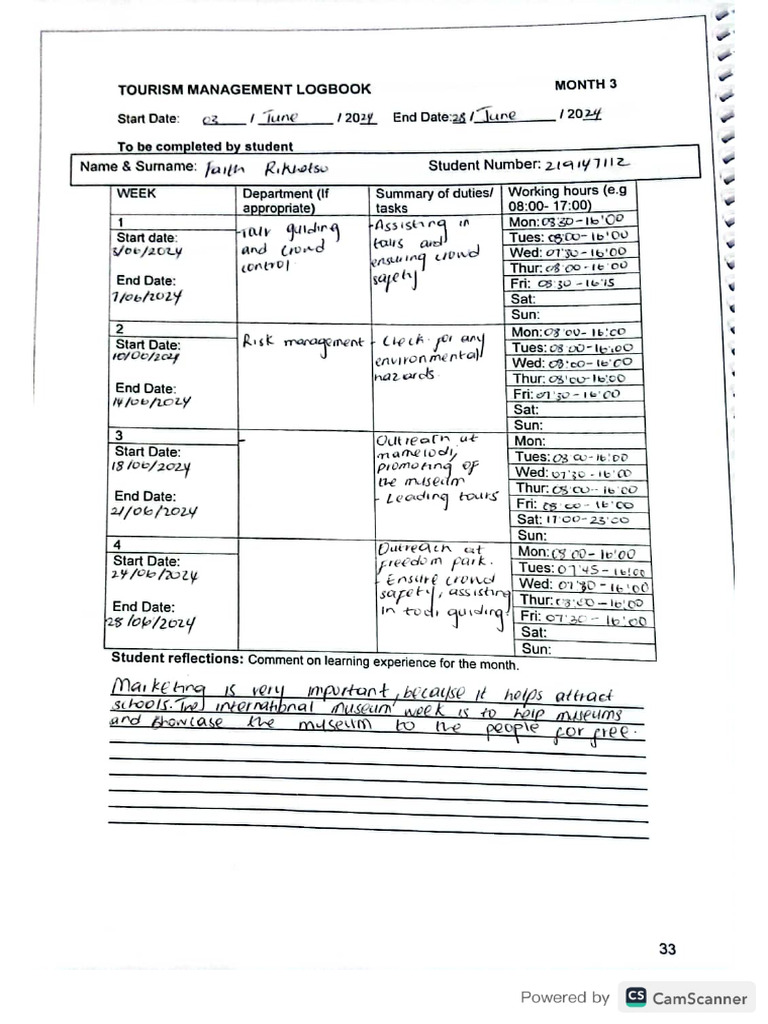 TOURISM MANAGEMENT LOGBOOK MONTH 3
Start Date: 03 / June / 2024 End Date: 28 / June / 2024
To be completed by student
Name & Surname: Faith Rikhotso Student Number: 219147112
WEEK Department (If appropriate) Summary of duties/ tasks Working hours (e.g 08:00- 17:00)
1
Start date:
3/06/2024
End Date:
7/06/2024
guiding
and crowd
control
-Assisting in
and
ensuring crowd
safety
Mon: 08:30-16:00
Tues: 08:00-16:00
Wed: 07:30-16:00
Thur: 08:00-16:00
Fri: 08:30-16:15
Sat:
Sun:
2
Start Date:
End Date:
14/06/2024
Risk management
- Check for any
environmental
hazards.
Mon: 08:00-16:00
Tues: 08:00-16:00
Wed: 08:00-16:00
Thur: 08:00-16:00
Fri: 07:30-16:00
Sat:
Sun:
3
Start Date:
18/06/2024
End Date:
21/06/2024
-
Outreach at
mamelodi,
promoting of
the museum
- Leading tours
Mon:
Tues: 08:00-16:00
Wed: 07:30-16:00
Thur: 08:00-16:00
Fri: 08:00-16:00
Sat: 17:00-23:00
Sun:
4
Start Date:
24/06/2024
End Date:
28/06/2024
Outreach at
freedom park.
- Ensure crowd
safety, assisting
in guiding.
Mon: 08:00-16:00
Tues: 07:45-16:00
Wed: 07:30-16:00
Thur: 08:00-16:00
Fri: 07:30-16:00
Sat:
Sun:
Student reflections: Comment on learning experience for the month.
Marketing is very important, because it helps attract
schools. The international museum week is to help museums
and showcase the museum to the people for free.
33
Powered by CS CamScanner